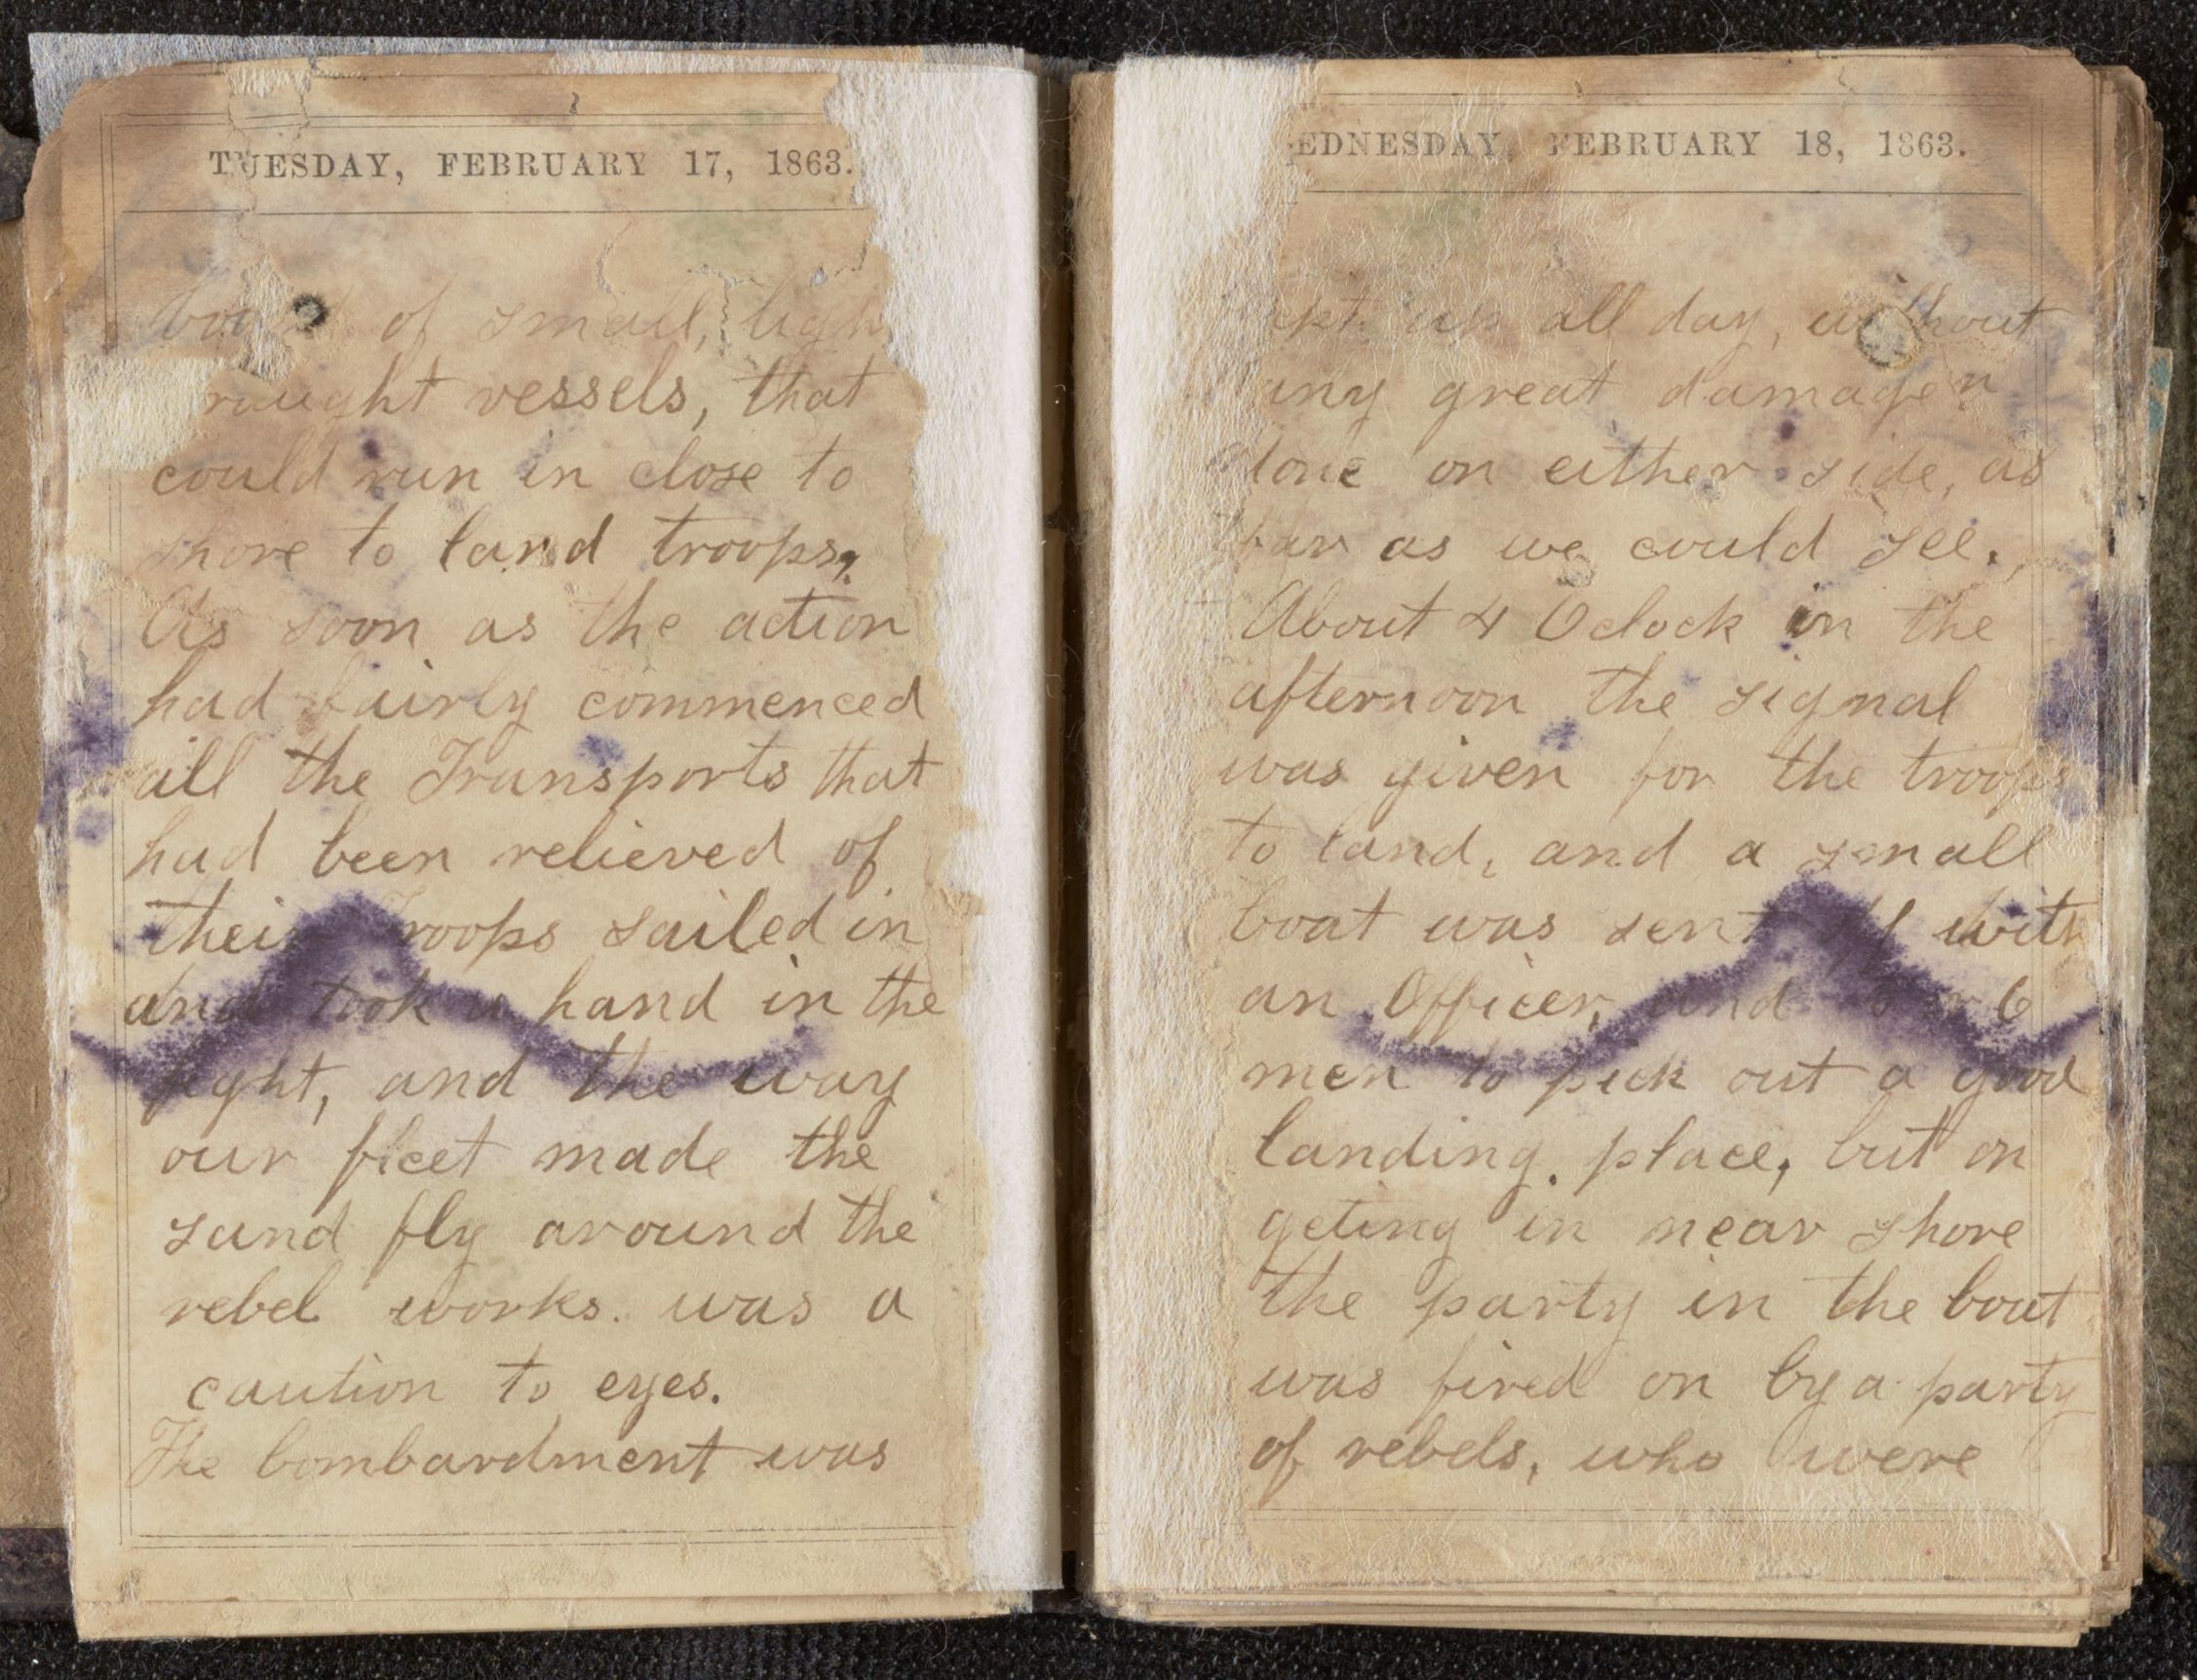 TUESDAY, FEBRUARY 17, 1863.
of small, ligh
raught vessels, that
could run in close to
shore to land troops,
As soon as the action
had fairly commenced
all the Transports that
had been relieved of
their Troops sailed in
and took a hand in the
fight, and the way
our fleet made the
sand fly around the
rebel works. was a
caution to eyes.
The bombardment was
EDNESDAY, FEBRUARY 18, 1863.
kept up all day, without
any great damage
done on either side, as
far as we could see.
About 4 Oclock in the
afternoon the signal
was given for the troops
to land, and a small
boat was sent off with
an Officer, and 6
men to pick out a good
landing. place, but on
geting in near shore
the party in the boat
was fired on by a party
of rebels, who were